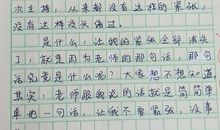 次主持，从来都没有这样的紧张，
没有这样没头过。
是什么，让我的紧张全都消失
了，就是因为老师的那句话，那句
话究竟是什么呢？大家想不想知道
其实，老师跟我说的话就是简简单
单地一句话，让我不要紧张，没事